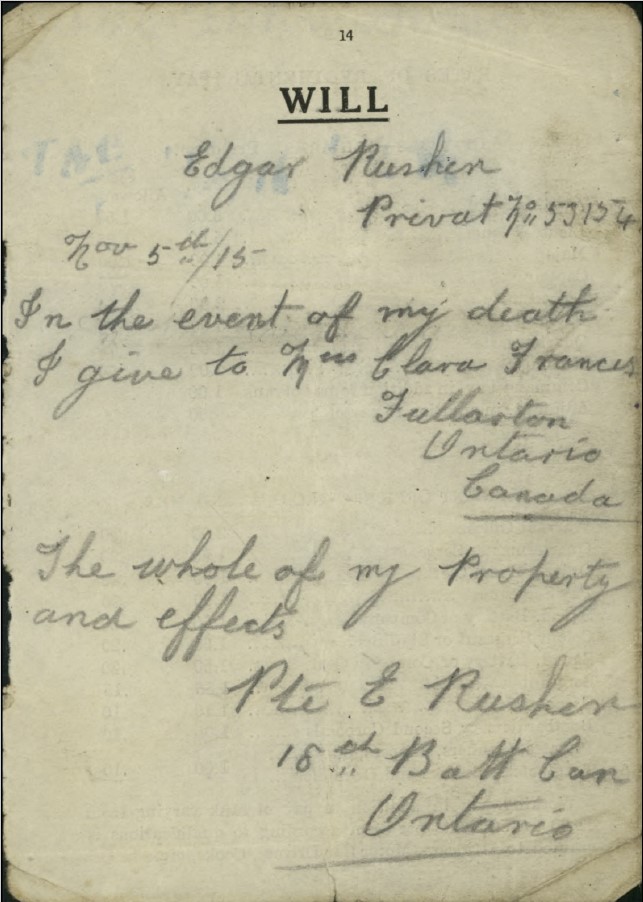 14
WILL
Edgar Rushen
Privat No 53154
Nov 5th/15
In the event of my death
I give to Mrs Clara Frances
Fullarton
Ontario
Canada
The whole of my Property
and effects
Pte E Rushen
18th Batt Can
Ontario